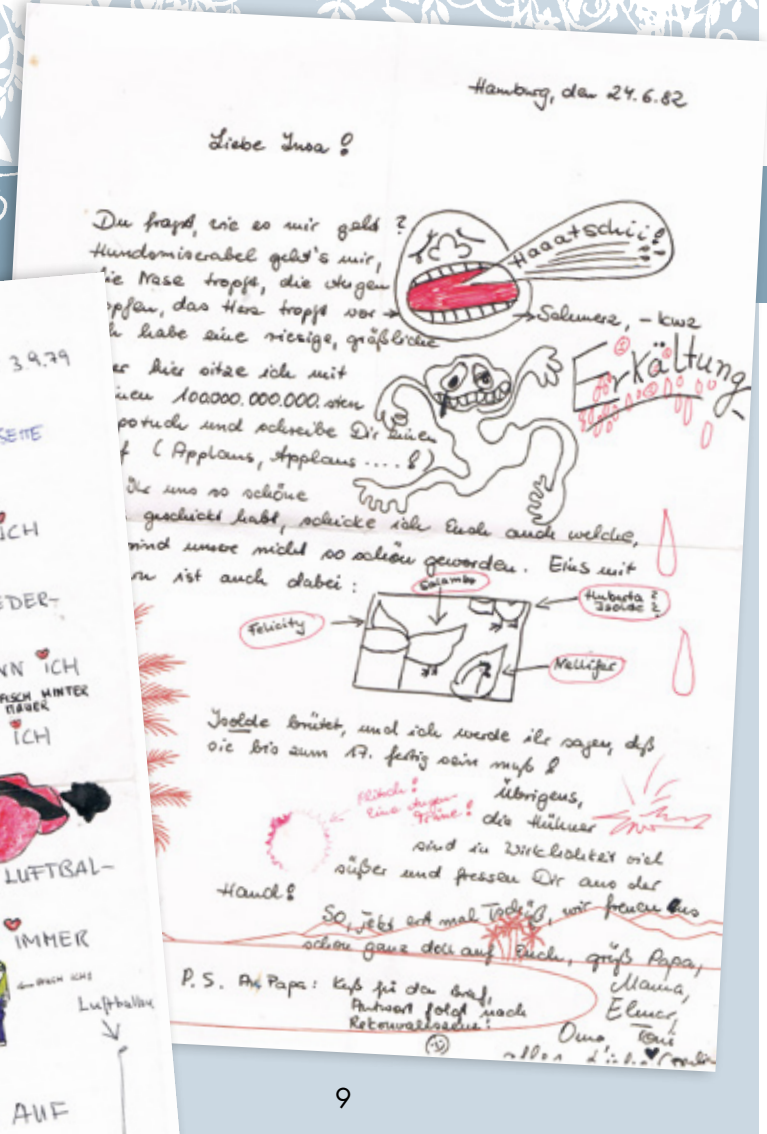 Hamburg, den 24.6.82
Liebe Insa!
Du fragst, wie es mir geht?
Hundsmiserabel geht's mir,
ie Nase tropft, die Augen
opfen, das Herz tropft vor →
h habe eine riesige, gräßliche
Haaatschiii!!
→Schmerz, – kurz
Erkältung
er hier sitze ich mit
inen 100000.000.000.sten
potuch und schreibe Dir einen
f (Applaus, Applaus ....!)
Ihr uns so schöne
geschickt habt, schicke ich Euch auch welche,
sind unsere nicht so schön geworden. Eins mit
rn ist auch dabei:
Salambo
Huberta?
Isolde?
Felicity
Nellifer
Isolde brütet, und ich werde ihr sagen, daß
sie bis zum 17. fertig sein muß!
Flitsch!
Eine Augen-
träne!
Übrigens,
die Hühner
sind in Wirklichkeit viel
süßer und fressen Dir aus der
Hand!
So, jetzt erst mal Tschüß, wir freuen uns
schon ganz doll auf Euch, grüß Papa,
Mama,
Elmar,
Oma Toni
P.S. An Papa: Kuß für den Brief,
Antwort folgt nach
Rekonvaleszenz!
3.9.79
SEITE
ICH
EDER-
NN ICH
FISCH HINTER
MAUER
ICH
LUFTBAL-
IMMER
← AUCH ICH!
Luftballon
AUF
9